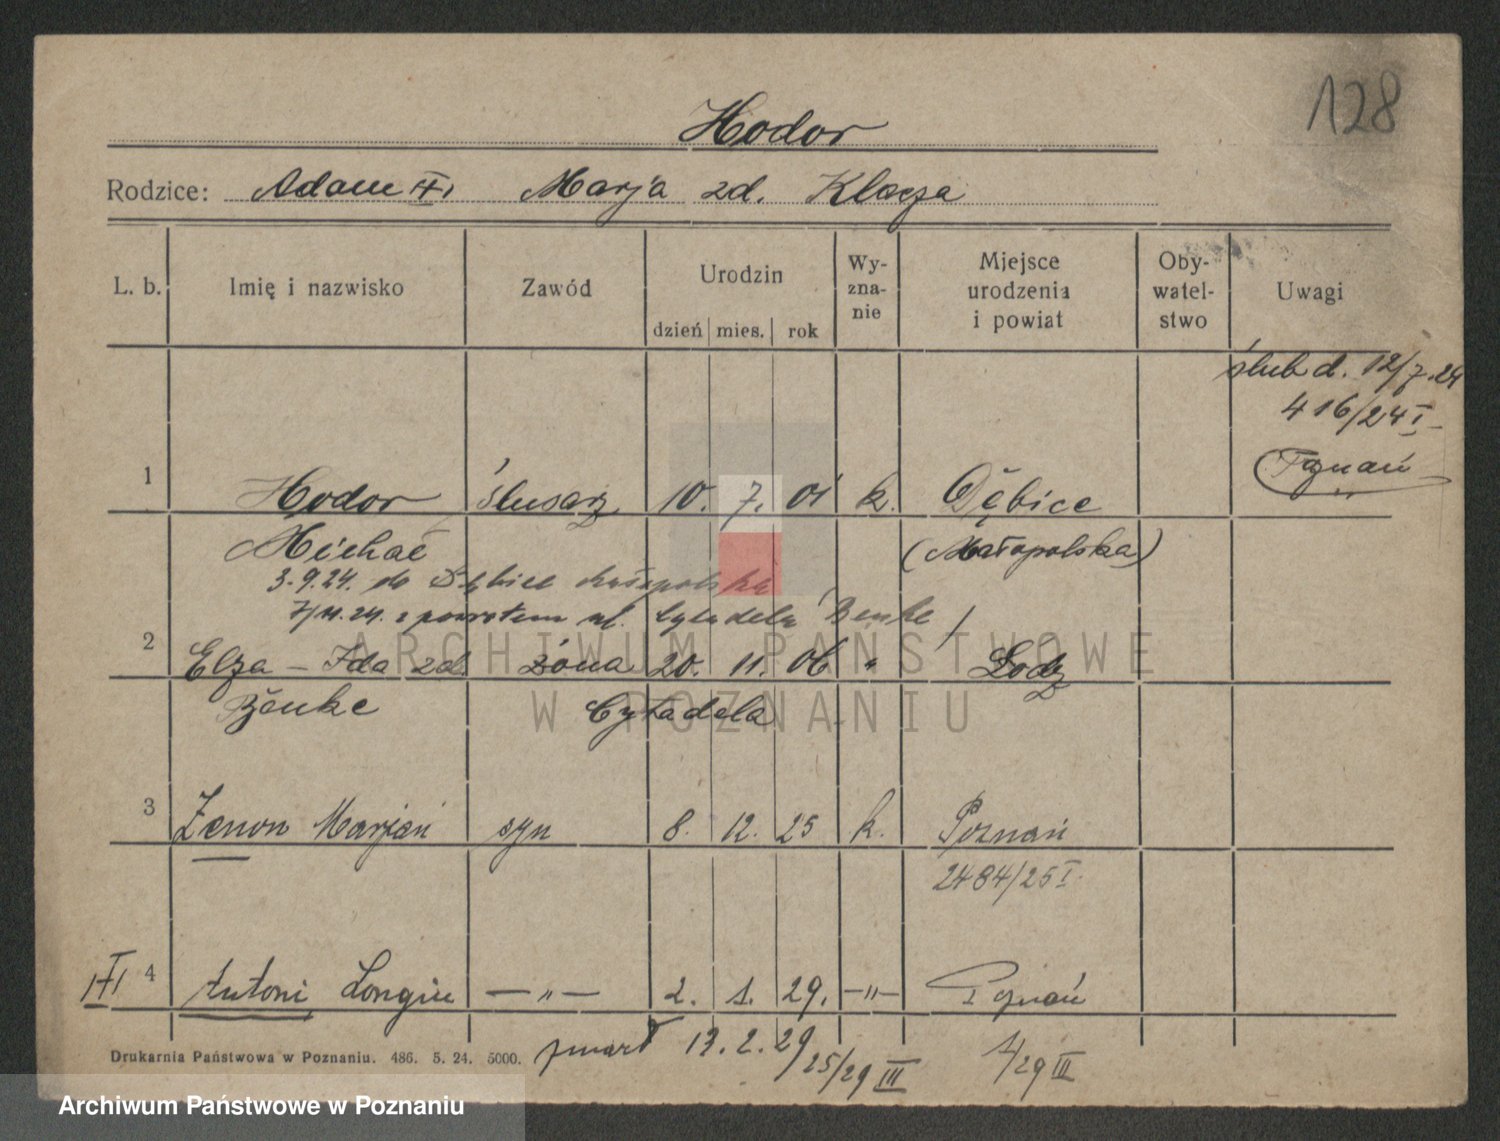 128
Hodor
Rodzice: Adam Marja zd. Klocza
L. b. Imię i nazwisko Zawód Urodzin dzień mies. rok Wy-zna-nie Miejsce urodzenia i powiat Oby-watel-stwo Uwagi
ślub d. 12/7.24
416/24 I
Poznań
1 Hodor Ślusarz 10. 7. 01 k. Dębice
Michał (Małopolska)
3.9.24. do Dębice Małopolska
7/11.24. z powrotem ul. Cytadela Benke
2 Elza - Ida zd. żona 20. 11. 06 " Łodz
Benke Cytadela
3 Zenon Marjan syn 8. 12. 25 k. Poznań
2484/25 I.
4 Antoni Longin — " — 2. 1. 29. —"— Poznań
zmarł 13.2.29 25/29 III 1/29 III
Drukarnia Państwowa w Poznaniu. 486. 5. 24. 5000.
ARCHIWUM PAŃSTWOWE
W POZNANIU
Archiwum Państwowe w Poznaniu